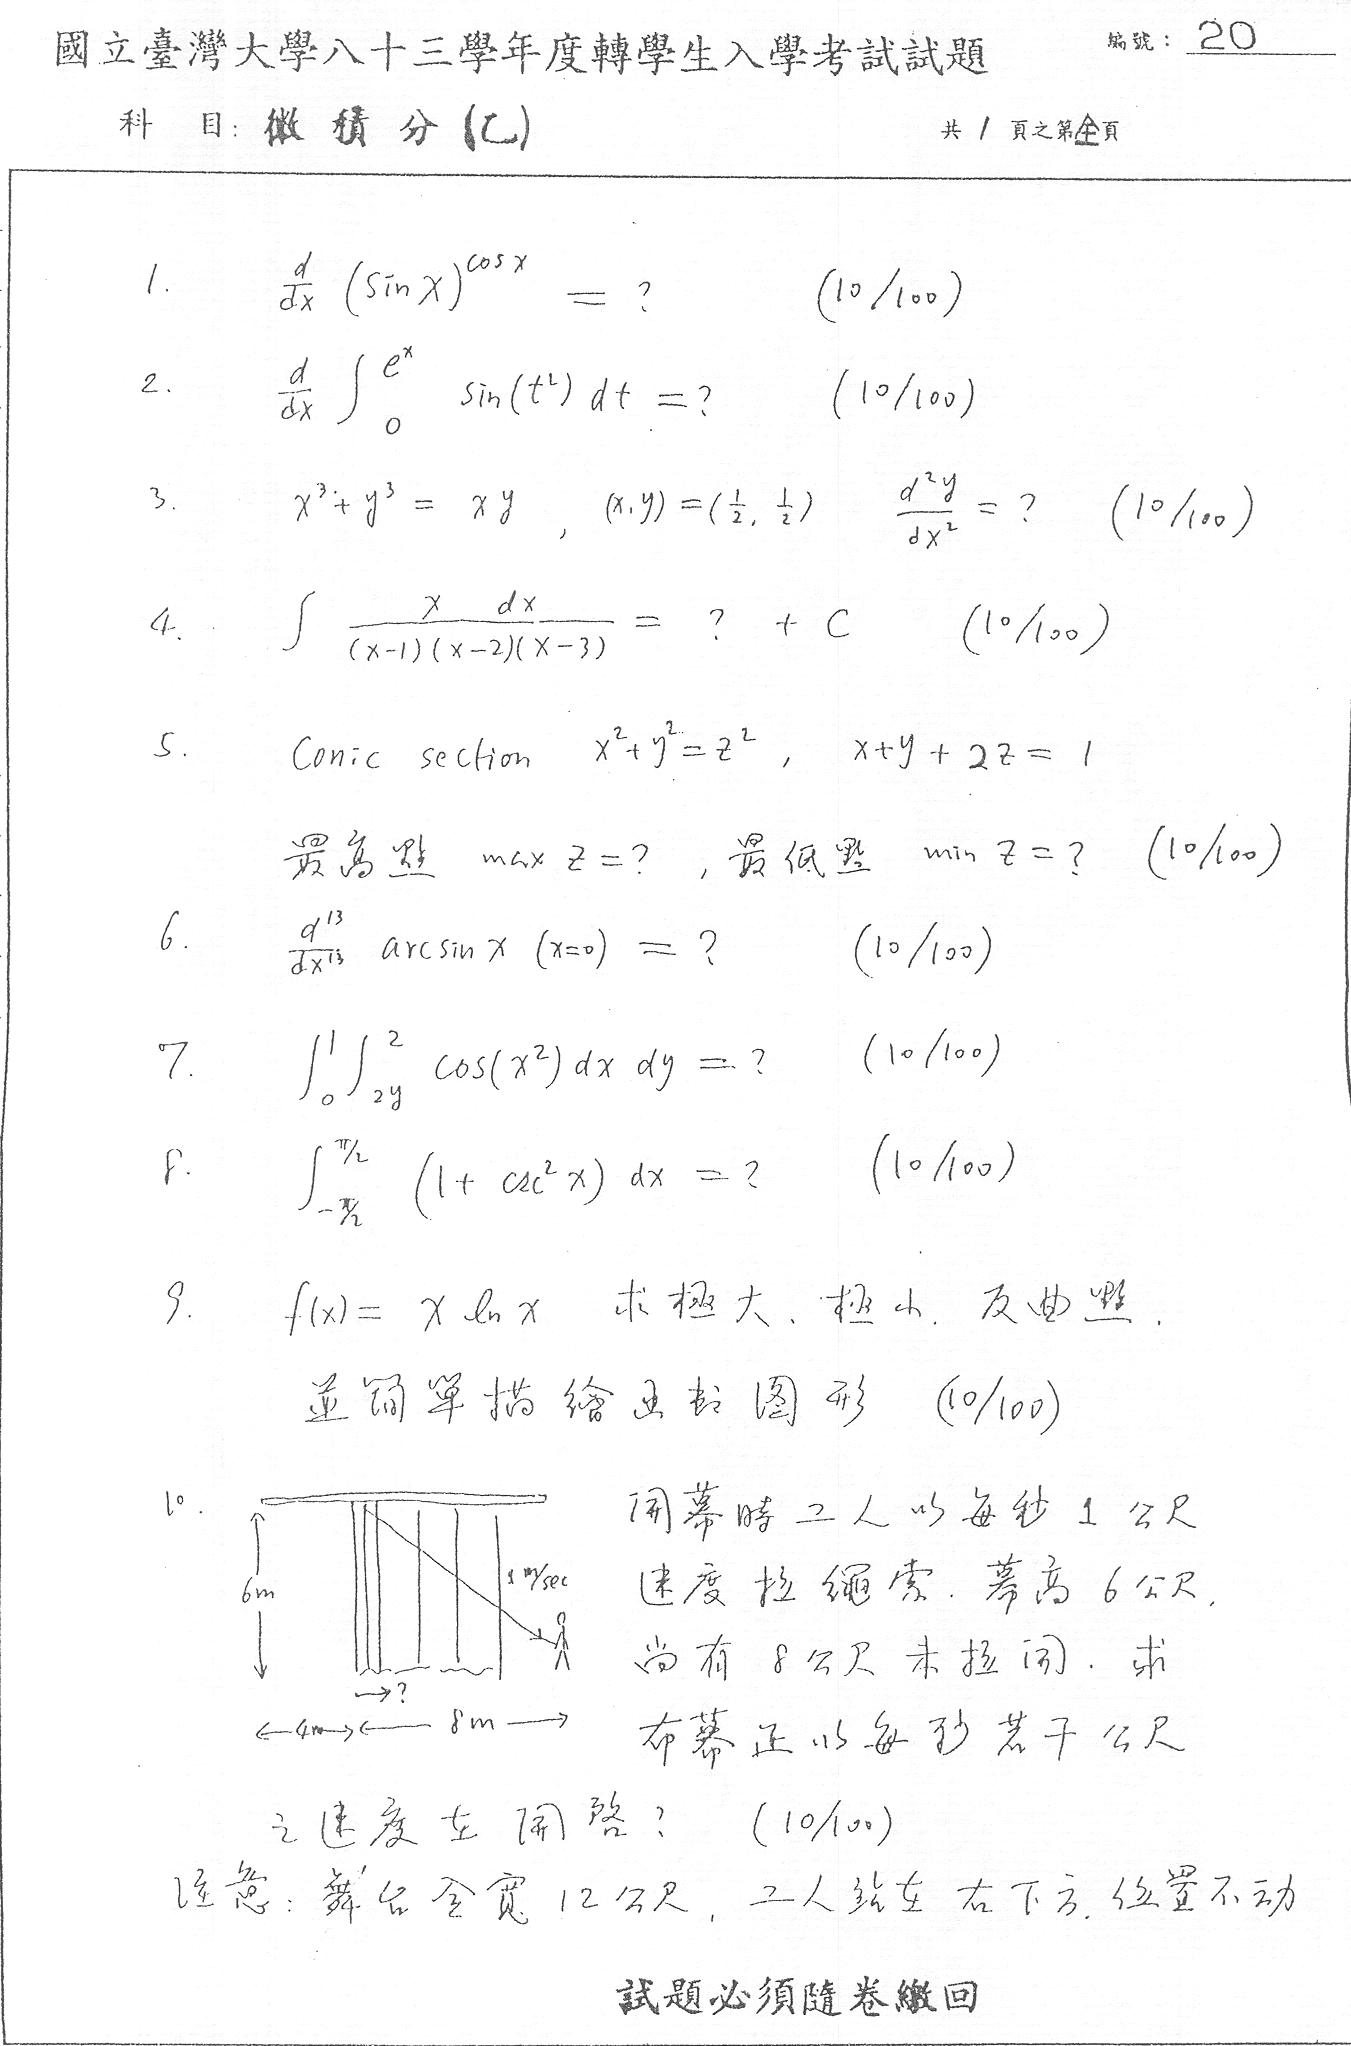 國立臺灣大學八十三學年度轉學生入學考試試題 編號: 20
科 目: 微積分(乙) 共 1 頁之第全頁
1. d/dx (sin x)^cos x = ? (10/100)
2. d/dx ∫_0^e^x sin(t²) dt = ? (10/100)
3. x³+y³ = xy , (x,y)=(1/2, 1/2) d²y/dx² = ? (10/100)
4. ∫ x dx/(x-1)(x-2)(x-3) = ? + C (10/100)
5. Conic section x²+y²=z² , x+y+2z=1
最高點 max z=? , 最低點 min z=? (10/100)
6. d^13/dx^13 arcsin x (x=0) = ? (10/100)
7. ∫_0^1 ∫_2y^2 cos(x²) dx dy = ? (10/100)
8. ∫_-π/2^π/2 (1+csc²x) dx = ? (10/100)
9. f(x)= x ln x 求極大、極小、反曲點.
並簡單描繪函數图形 (10/100)
10. 開幕時工人以每秒 1 公尺
速度拉繩索. 幕高 6 公尺,
尚有 8 公尺未拉開. 求
布幕正以每秒若干公尺
之速度在開啓? (10/100)
6m
1 m/sec
→?
4m 8m
注意: 舞台全寬 12 公尺, 工人站在右下方, 位置不动
試題必須隨卷繳回